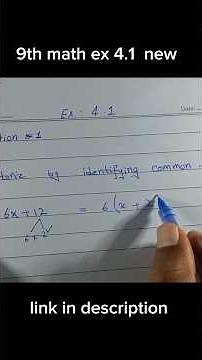 9th math ex 4.1 new
Ex: 4.1
Date
tion # 1
torize by identifying common
6x + 12 = 6(x +
6 × 2
link in description